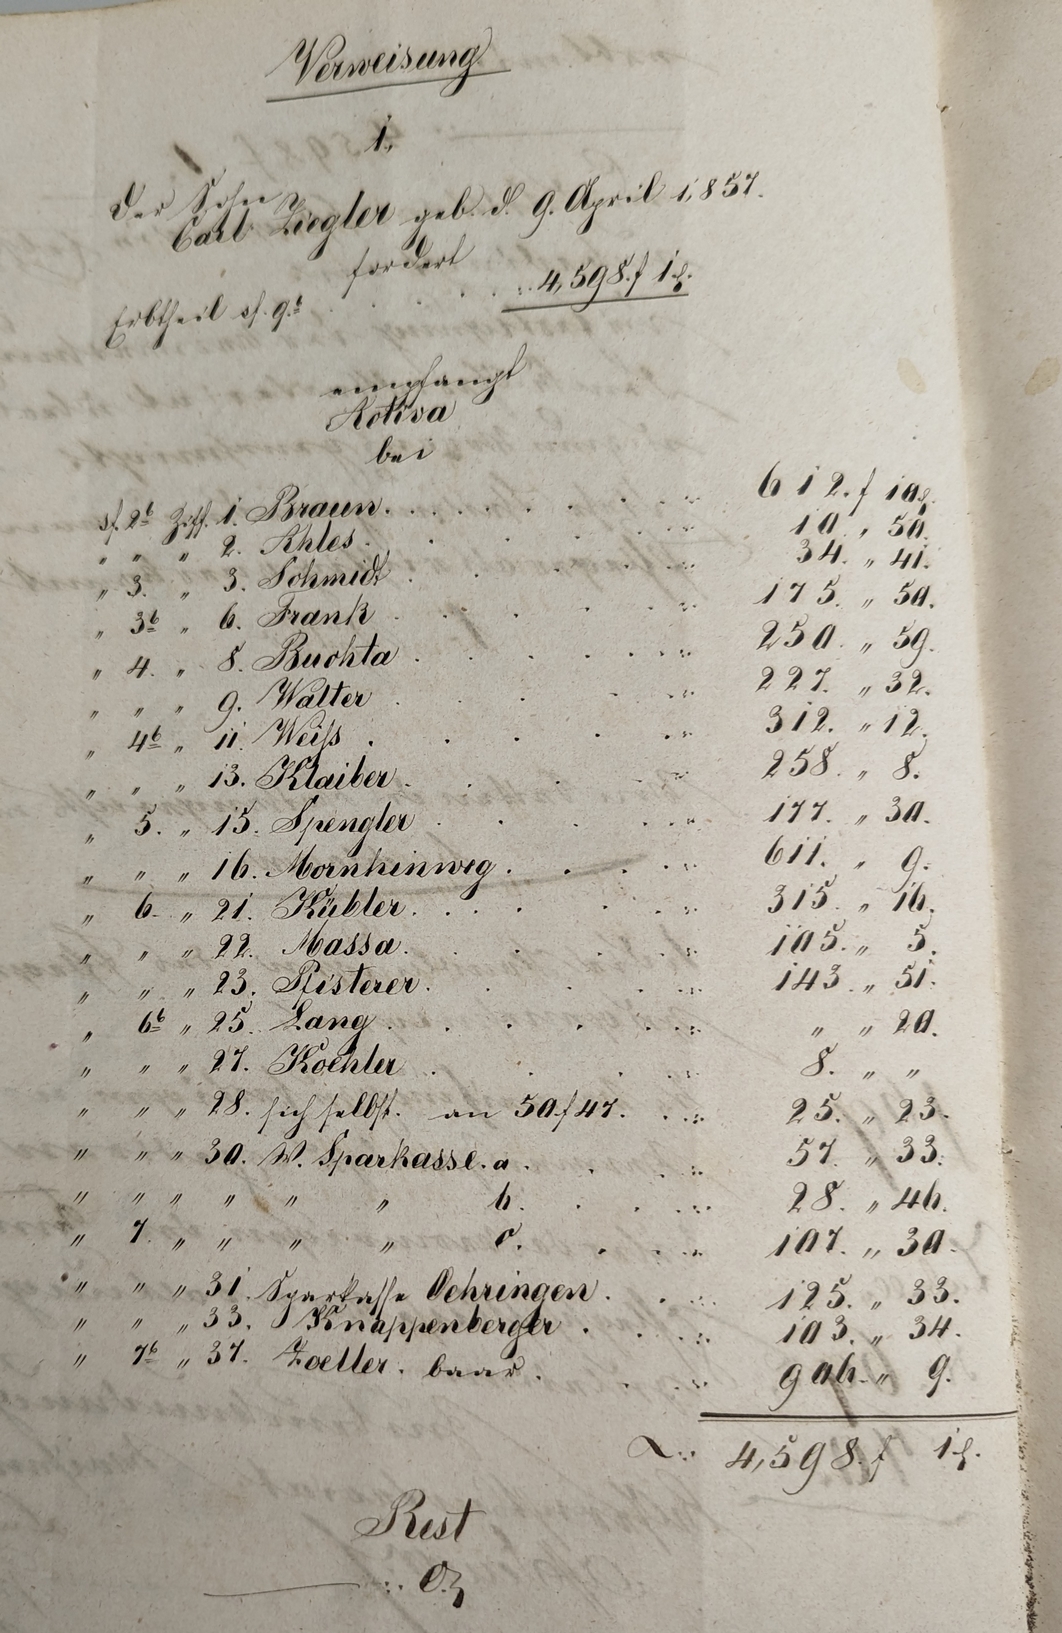 Verweisung
1.
Der Sohn
Carl Ziegler geb. d. 9. April 1857.
fordert
Erbtheil bl. 9.b . . . . 4,598. f 1 x.
empfangt
Activa
bei
bl. 2b Ziff. 1. Braun . . . . 612. f 10 x.
" " " 2. Ahles . . . . 10. " 50.
" 3. " 3. Schmidt . . . . 34. " 41.
" 3b " 6. Frank . . . . 175. " 50.
" 4. " 8. Buchta . . . . 250. " 59.
" " " 9. Walter . . . . 227. " 32.
" 4b " 11. Weiß . . . . 312. " 12.
" " " 13. Klaiber . . . . 258. " 8.
" 5. " 15. Spengler . . . . 177. " 30.
" " " 16. Mornhinweg . . . . 611. " 9.
" 6. " 21. Kübler . . . . 315. " 16.
" " " 22. Massa . . . . 105. " 5.
" " " 23. Pfisterer . . . . 143. " 51.
" 6b " 25. Lang . . . . " " 20.
" " " 27. Koehler . . . . 8. " "
" " " 28. sich selbst. an 50 f 47. . . . 25. " 23.
" " " 30. W. Sparkasse. a. . . . 57. " 33.
" " " " " " b. . . . 28. " 46.
" 7. " " " " c. . . . 107. " 30.
" " " 31. Sparkasse Oehringen . . . . 125. " 33.
" " " 33. Knappenberger . . . . 103. " 34.
" 7b " 37. Zoeller. baar . . . . 906. " 9.
4,598. f 1 x.
Rest
0.